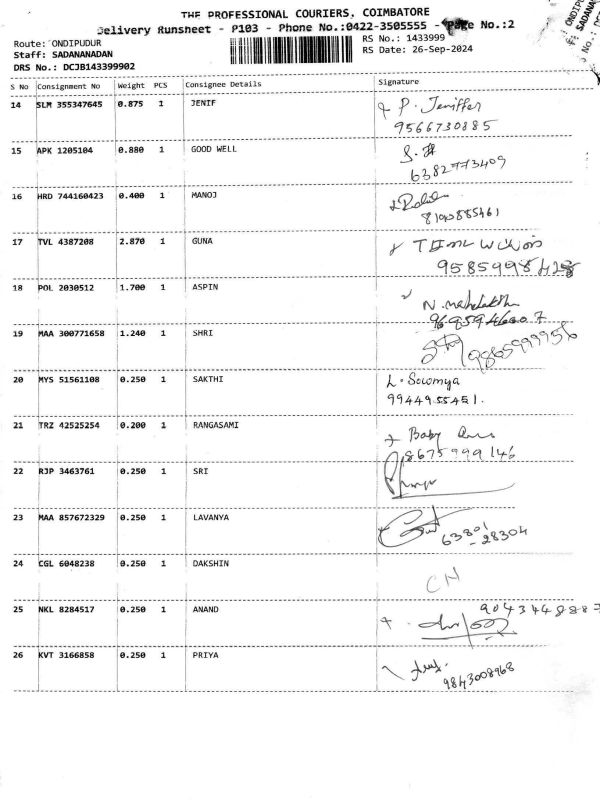 THE PROFESSIONAL COURIERS, COIMBATORE
Delivery Runsheet - P103 - Phone No.:0422-3505555 - Page No.:2
Route: ONDIPUDUR
Staff: SADANANADAN
DRS No.: DCJB143399902
RS No.: 1433999
RS Date: 26-Sep-2024
ONDIPU
SADANAN
S No Consignment No Weight PCS Consignee Details Signature
14 SLM 355347645 0.875 1 JENIF P. Jeniffer
9566730885
15 APK 1205104 0.880 1 GOOD WELL
6382773409
16 HRD 744160423 0.400 1 MANOJ
17 TVL 4387208 2.870 1 GUNA
9585998428
18 POL 2030512 1.700 1 ASPIN
19 MAA 300771658 1.240 1 SHRI 9865999956
20 MYS 51561108 0.250 1 SAKTHI L. Sowmya
9944955451.
21 TRZ 42525254 0.200 1 RANGASAMI Baby
8675999146
22 RJP 3463761 0.250 1 SRI
23 MAA 857672329 0.250 1 LAVANYA 63801
- 28304
24 CGL 6048238 0.250 1 DAKSHIN CN
25 NKL 8284517 0.250 1 ANAND 9043448887
26 KVT 3166858 0.250 1 PRIYA
9843008968